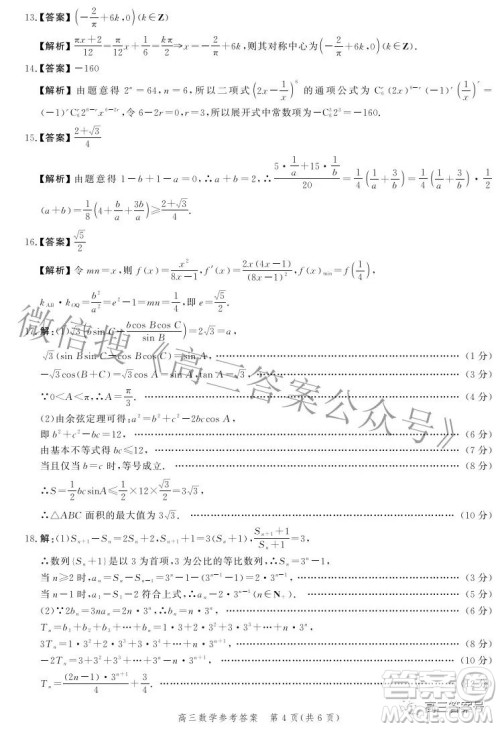 13.【答案】(-2/π+6k,0)(k∈Z)
【解析】(πx+2)/12=π/12 x+1/6=kπ/π⇒x=-2/π+6k,则其对称中心为(-2/π+6k,0)(k∈Z).
14.【答案】-160
【解析】由题意得 2ⁿ=64,n=6,所以二项式(2x-1/x)⁶的通项公式为 C₆ʳ(2x)⁶⁻ʳ(-1/x)ʳ=
(-1)ʳC₆ʳ2⁶⁻ʳx⁶⁻²ʳ,令 6-2r=0,r=3,所以展开式中常数项为-C₆³2³=-160.
15.【答案】(2+√3)/4
【解析】由题意得 1-b+1-a=0,∴a+b=2,∴(5·1/a+15·1/b)/20=1/4(1/a+3/b)=1/4(1/a+3/b)·1/2·
(a+b)=1/8(4+b/a+3a/b)≥(2+√3)/4.
16.【答案】√5/2
【解析】令 mn=x,则 f(x)=x²/(8x-1),f′(x)=2x(4x-1)/(8x-1)²,f(x)min=f(1/4),
·k_OQ=b²/a²=e²-1=mn=1/4,即 e=√5/2.
17.解:(1)√3(bsin C+bcos Bcos C/sin B)=2√3=a,
√3(sin Bsin C-cos Bcos C)=sin A, (1 分)
-√3cos(B+C)=√3cos A=sin A,tan A=√3. (3 分)
∵0<A<π,∴A=π/3. (4 分)
(2)由余弦定理可得:a²=b²+c²-2bccos A,
即 b²+c²-bc=12, (6 分)
由基本不等式得 bc≤12, (7 分)
当且仅当 b=c 时,等号成立. (8 分)
∴S=1/2 bcsin A≤1/2×12×√3/2=3√3,
∴△ABC 面积的最大值为 3√3. (10 分)
18.解:(1)Sₙ₊₁-Sₙ=2Sₙ+2,Sₙ₊₁+1=3(Sₙ+1),(Sₙ₊₁+1)/(Sₙ+1)=3,
∴数列{Sₙ+1}是以 3 为首项,3 为公比的等比数列,∴Sₙ=3ⁿ-1. (2 分)
当 n≥2 时,aₙ=Sₙ-Sₙ₋₁=3ⁿ-1-(3ⁿ⁻¹-1)=2·3ⁿ⁻¹, (4 分)
当 n=1 时,a₁=S₁=2 符合上式,∴aₙ=2·3ⁿ⁻¹(n∈N₊). (5 分)
(2)∵2bₙ=3naₙ=2n·3ⁿ,∴bₙ=n·3ⁿ, (6 分)
Tₙ=b₁+b₂+b₃+…+bₙ=1·3+2·3²+3·3³+…+n·3ⁿ,
3Tₙ=1·3²+2·3³+3·3⁴+…+n·3ⁿ⁺¹, (8 分)
-2Tₙ=3+3²+3³+…+3ⁿ-n·3ⁿ⁺¹, (9 分)
Tₙ=(2n-1)·3ⁿ⁺¹/4+3/4.
高三数学参考答案 第 4 页(共 6 页)
微信搜《高三答案公众号》
高三答案号